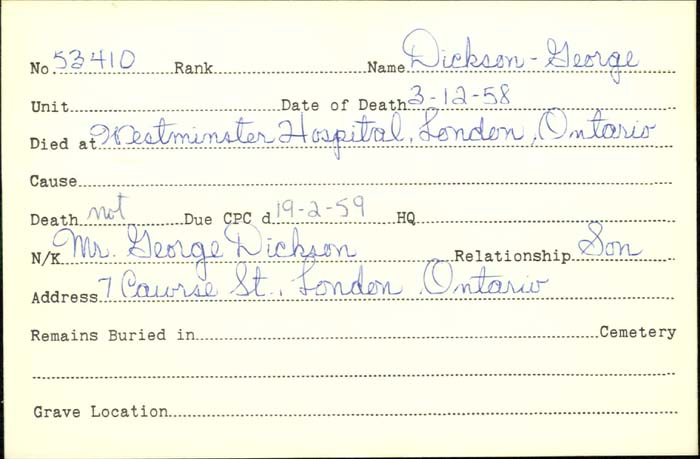 No 53410 Rank Name Dickson - George
Unit Date of Death 3-12-58
Died at Westminster Hospital, London, Ontario
Cause
Death not Due CPC d 19-2-59 HQ
N/K Mr. George Dickson Relationship Son
Address 7 St., London, Ontario
Remains Buried in Cemetery
Grave Location